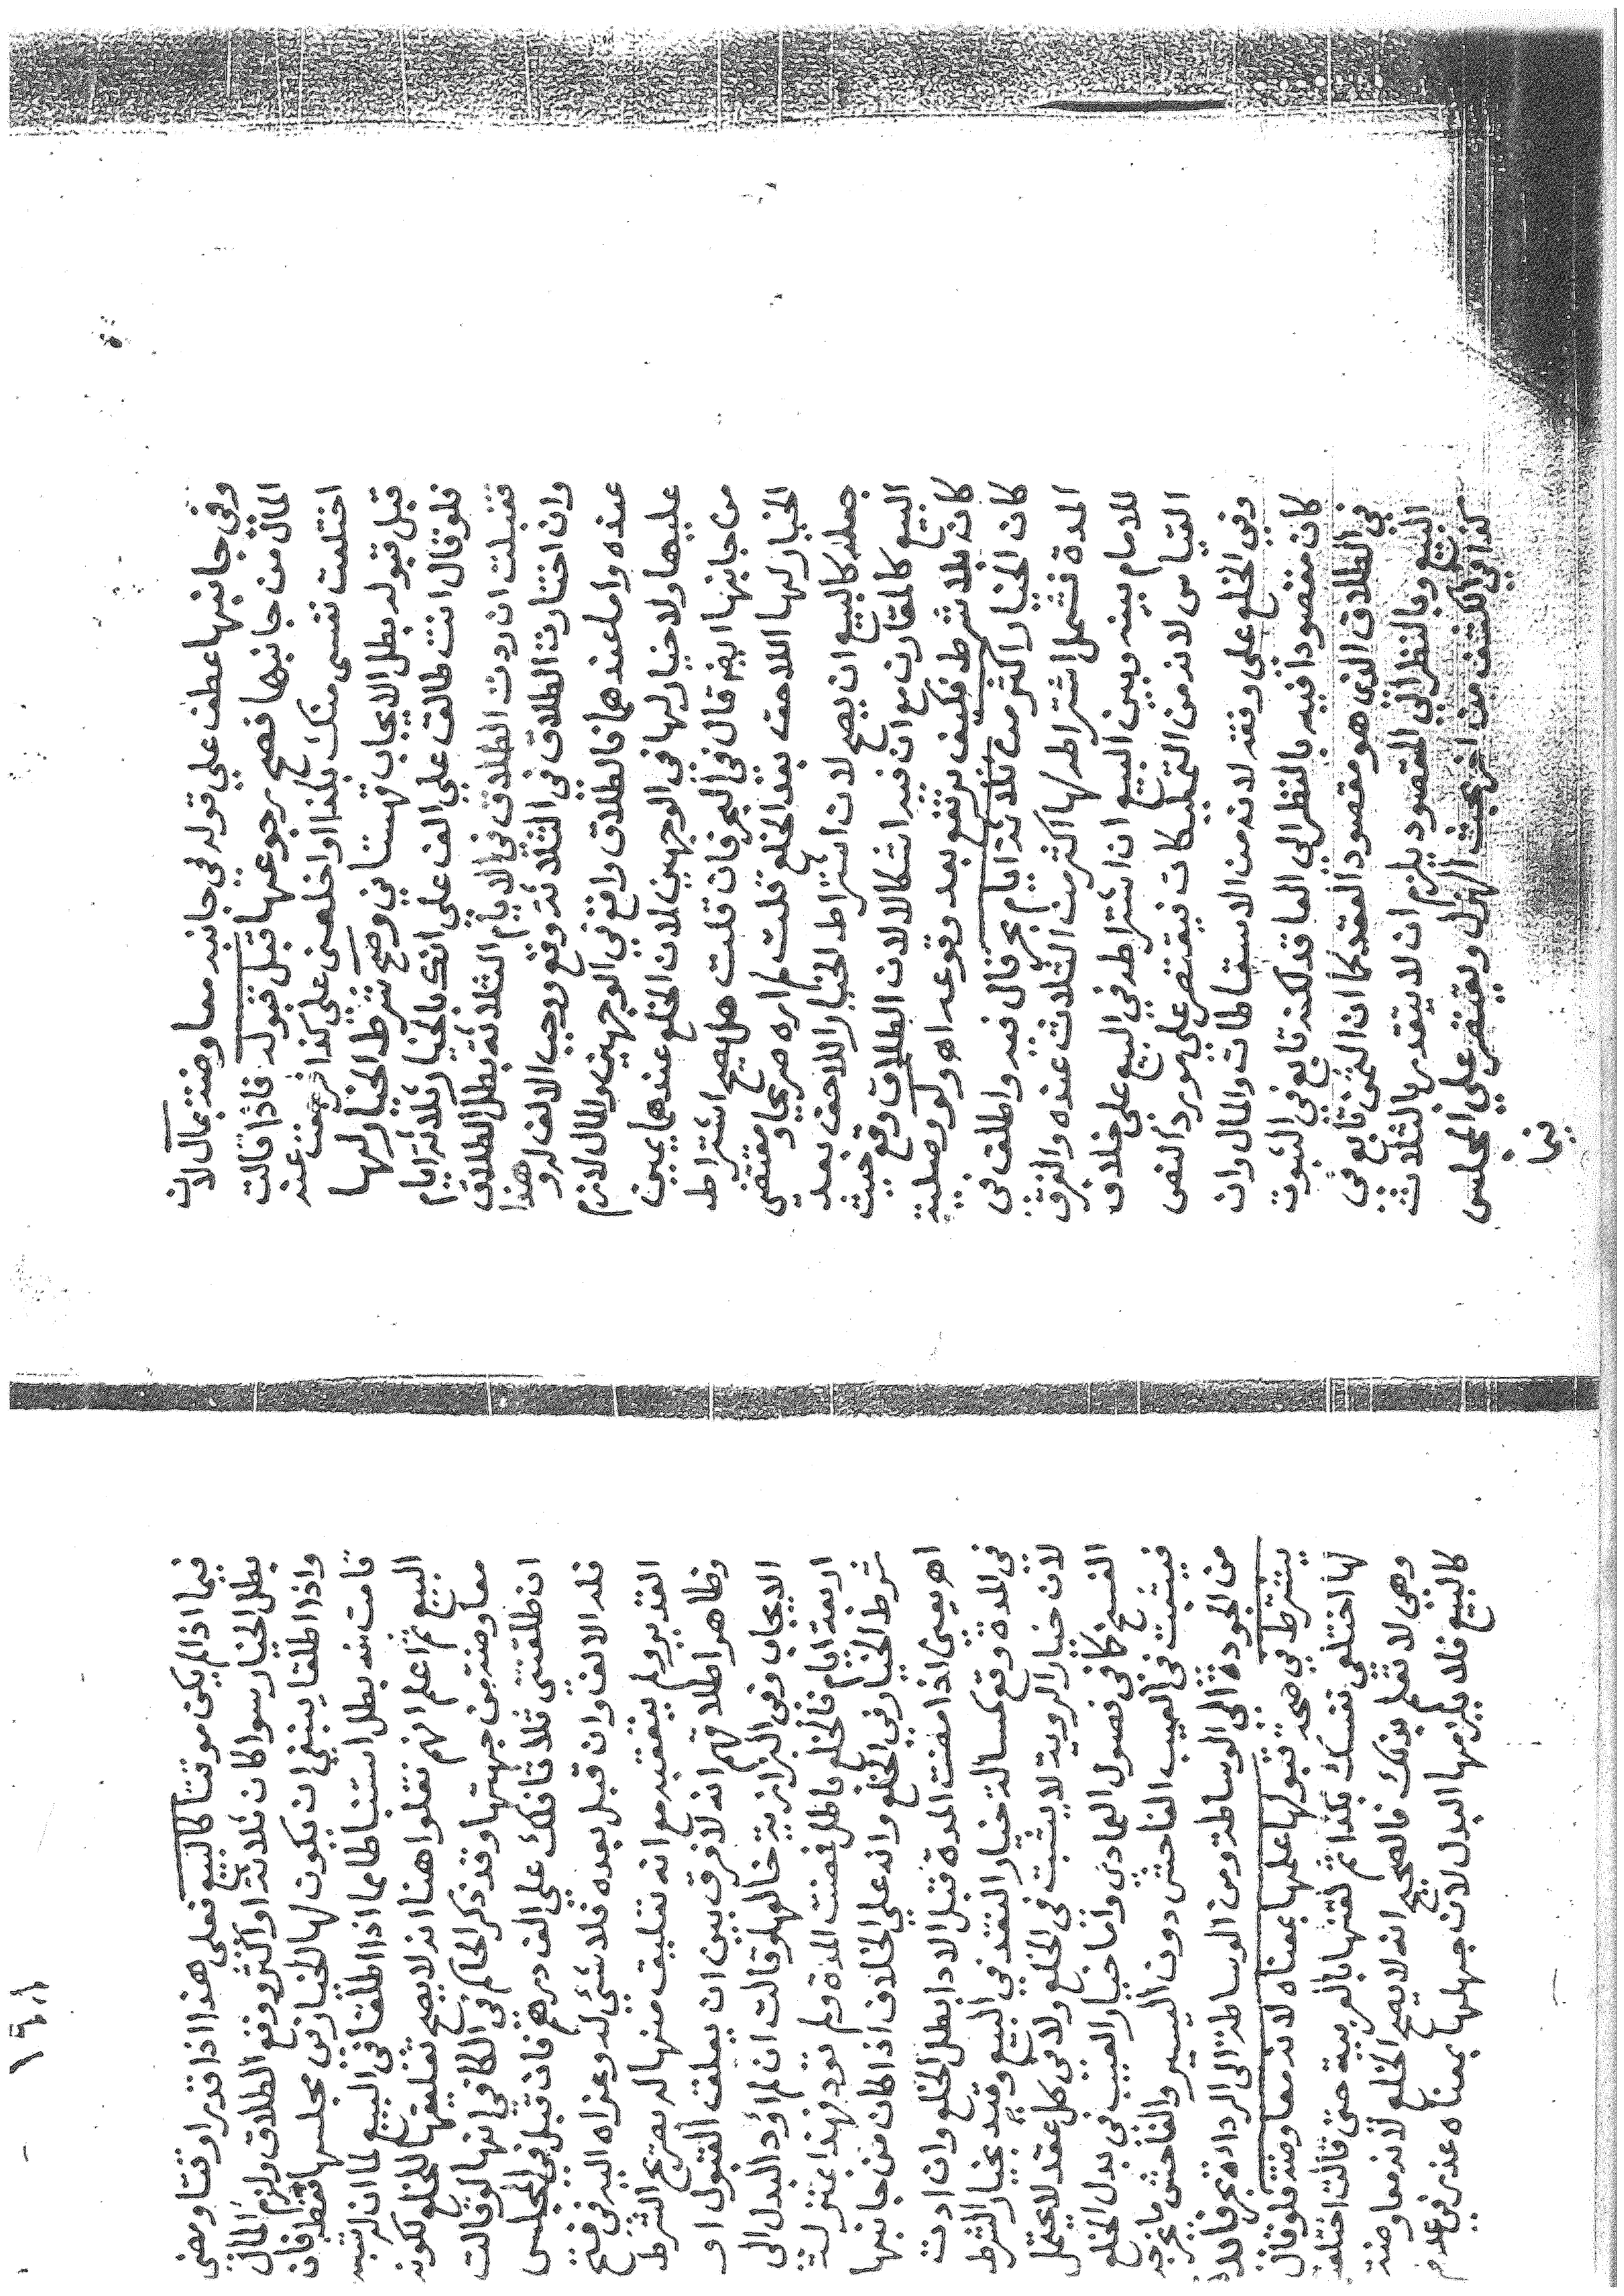 وفي جانبها عطف علي قوله في جانبه معاوضة بمال لان
المال من جانبها فصح رجوعها قبل قبوله فاذا قالت
اختلعت نفسي منك بكذا او اخلعني علي كذا فرجعت عنه
قبل قبوله بطل الايجاب قهستاني وصح شرط الخيار لها
فلو قال انت طالق علي الف علي انك بالخيار ثلاثة ايام
فقبلت ان ردت الطلاق في الايام الثلاثة بطل الطلاق
وان اختارت الطلاق في الثلاثة وقع ووجب الالف له وهذا
عنده واما عندهما فالطلاق واقع في الوجهين والمال لازم
عليها ولا خيار لها في الوجهين لان الخلع عندهما يمين
من جانبها ايضا قال في البحر فان قلت هل يصح اشتراط
الخيار لها اللاحق بعد الخلع قلت لم اره صريحا ومقتضي
جعله كالبيع ان يصح لان اشتراط الخيار اللاحق بعد
البيع كالمقارن مع ان فيه اشكالا لان الطلاق وقع حيث
كان بلا شرط فكيف يرتفع بعد وقوعه اه ولو وصلية
كان الخيار اكثر من ثلاثة ايام بحر قال فيه واطلق في
المدة فشمل اشتراطه لها اكثر من الثلاث عنده والفرق
للامام بينه وبين البيع ان اشتراطه في البيع علي خلاف
القياس لانه من التمليكات فيقتصر علي مورد النص
وفي الخلع علي وفقه لانه من الاسقاطات والمال وان
كان مقصودا فيه بالنظر الي العاقد لكنه تابع في الثبوت
في الطلاق الذي هو مقصود العقد كما ان الثمن تابع في
البيع وبالنظر الي المقصود يلزم ان لا يتقدر بالثلاث
كذا في الكشف من بحث الهزل ويقتصر علي المجلس
فيما
١٩٨
فيما اذا لم يكن موقتا كالبيع فعلي هذا اذا قدرا وقتا ومضي
بطل الخيار سوا كان ثلاثة او اكثر ووقع الطلاق ولزم المال
واذا اطلقا ينبغي ان يكون لها الخيار في مجلسها فقط فان
قامت منه بطل استنباطا مما اذا اطلقا في البيع لما ان له شبه
البيع ثم اعلم انهم نقلوا هنا انه لا يصح تعليقها للخلع لكونه
معاوضة من جهتها وقد ذكر الحاكم في الكافي انها لو قالت
ان طلقتني ثلاثا فلك علي الف درهم فان قبل في المجلس
فله الالف وان قبل بعده فلا شي له وعزاه اليه في فتح
القدير ولم يتعقبه مع انه تعليق منها له بصريح الشرط
وظاهر اطلاقهم انه لا فرق بين ان يعلق القبول او
الايجاب وفي البزازية خالعها وقالت ان لم اؤد البدل الي
اربعة ايام فالخلع باطل فمضت المدة ولم تؤد فهذا بمنزلة
شرط الخيار في الخلع وانه علي الخلاف اذا كان من جانبها
اه يعني اذا مضت المدة قبل الادا بطل الخلع وان ادت
في المدة وقع كمسالة خيار النقد في البيع وقيد بخيار الشرط
لان خيار الروية لا يثبت في الخلع ولا في كل عقد لا يحتمل
الفسخ كما في فصول العمادي واما خيار العيب في بدل الخلع
فيثبت في العيب الفاحش دون اليسير والفاحش ما يخرجه
من الجودة الي الوساطة ومن الوساطة الي الرداءة بحر فائدة
يشترط في صحة قبولها علمها بمعناه لانه معاوضة فلو قال
لها اختلعي نفسك بكذا ثم لقنها بالعربية حتي قالت اختلعت
وهي لا تعلم بذلك فالصحيح انه لا يصح الخلع لانه معاوضة
كالبيع فلا يلزمها البدل لان جهلها بمعناه عذر في عدم